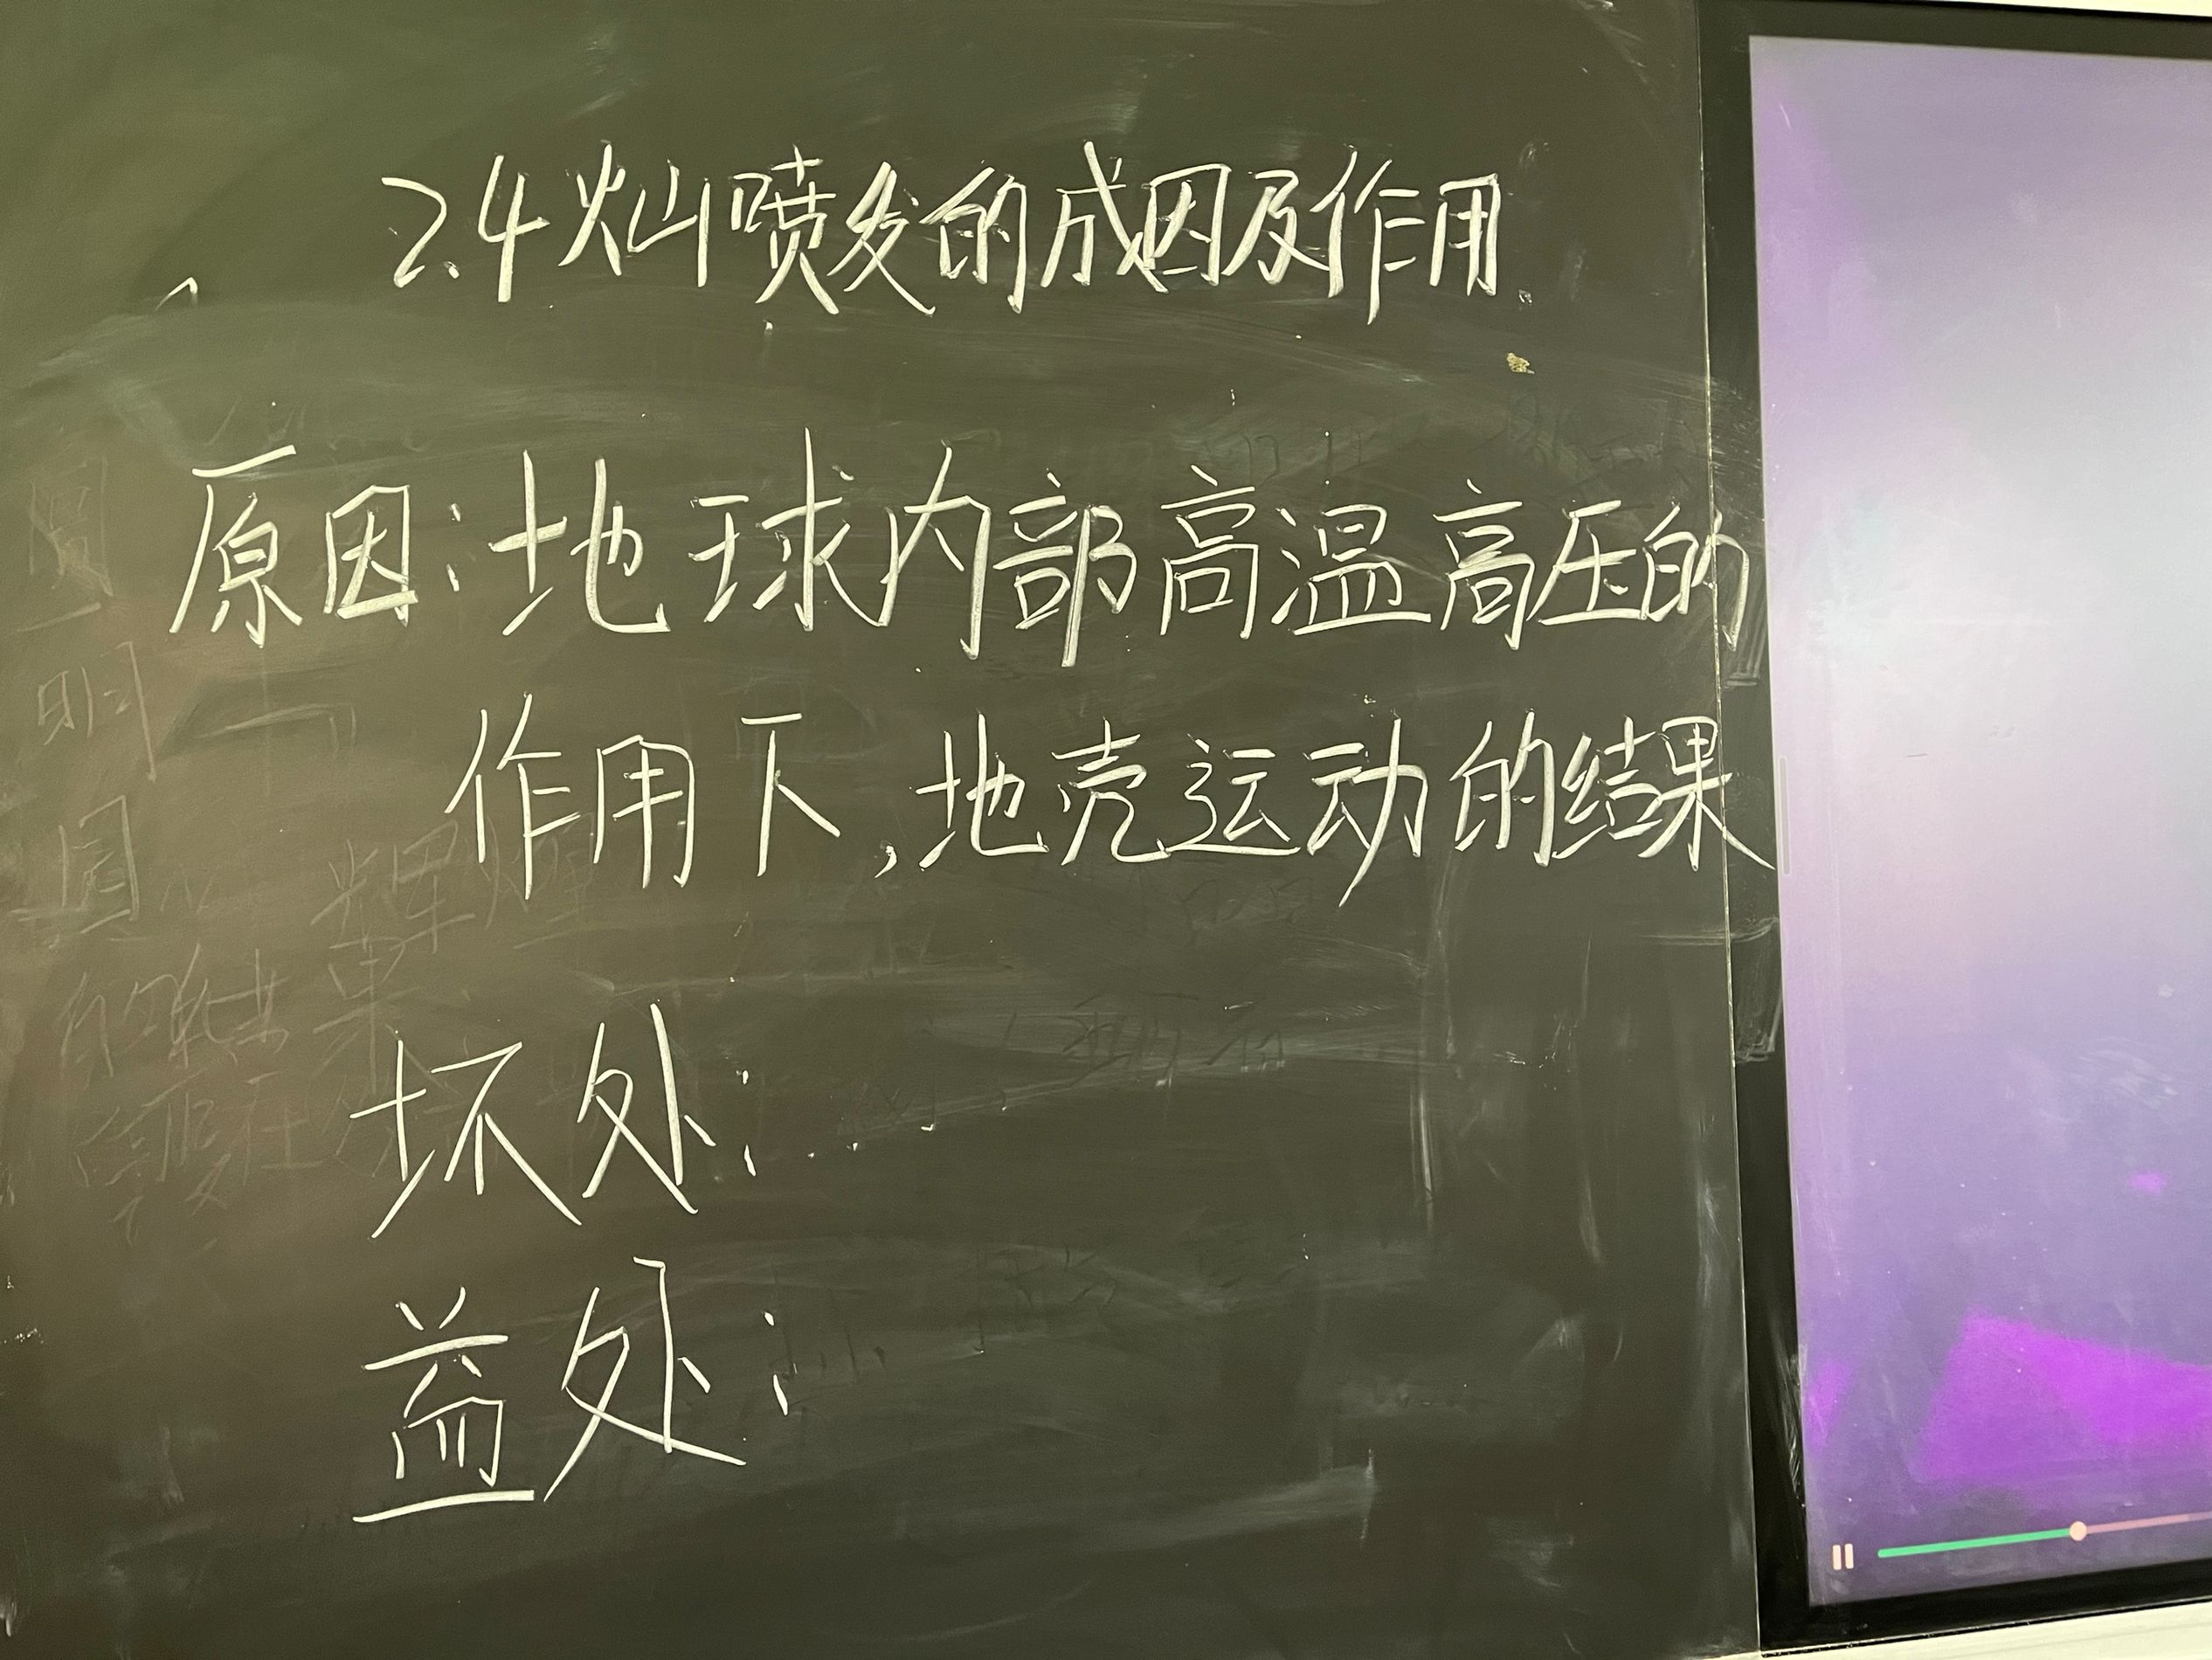 2.4火山喷发的成因及作用
原因:地球内部高温高压的
作用下,地壳运动的结果
坏处:
益处: